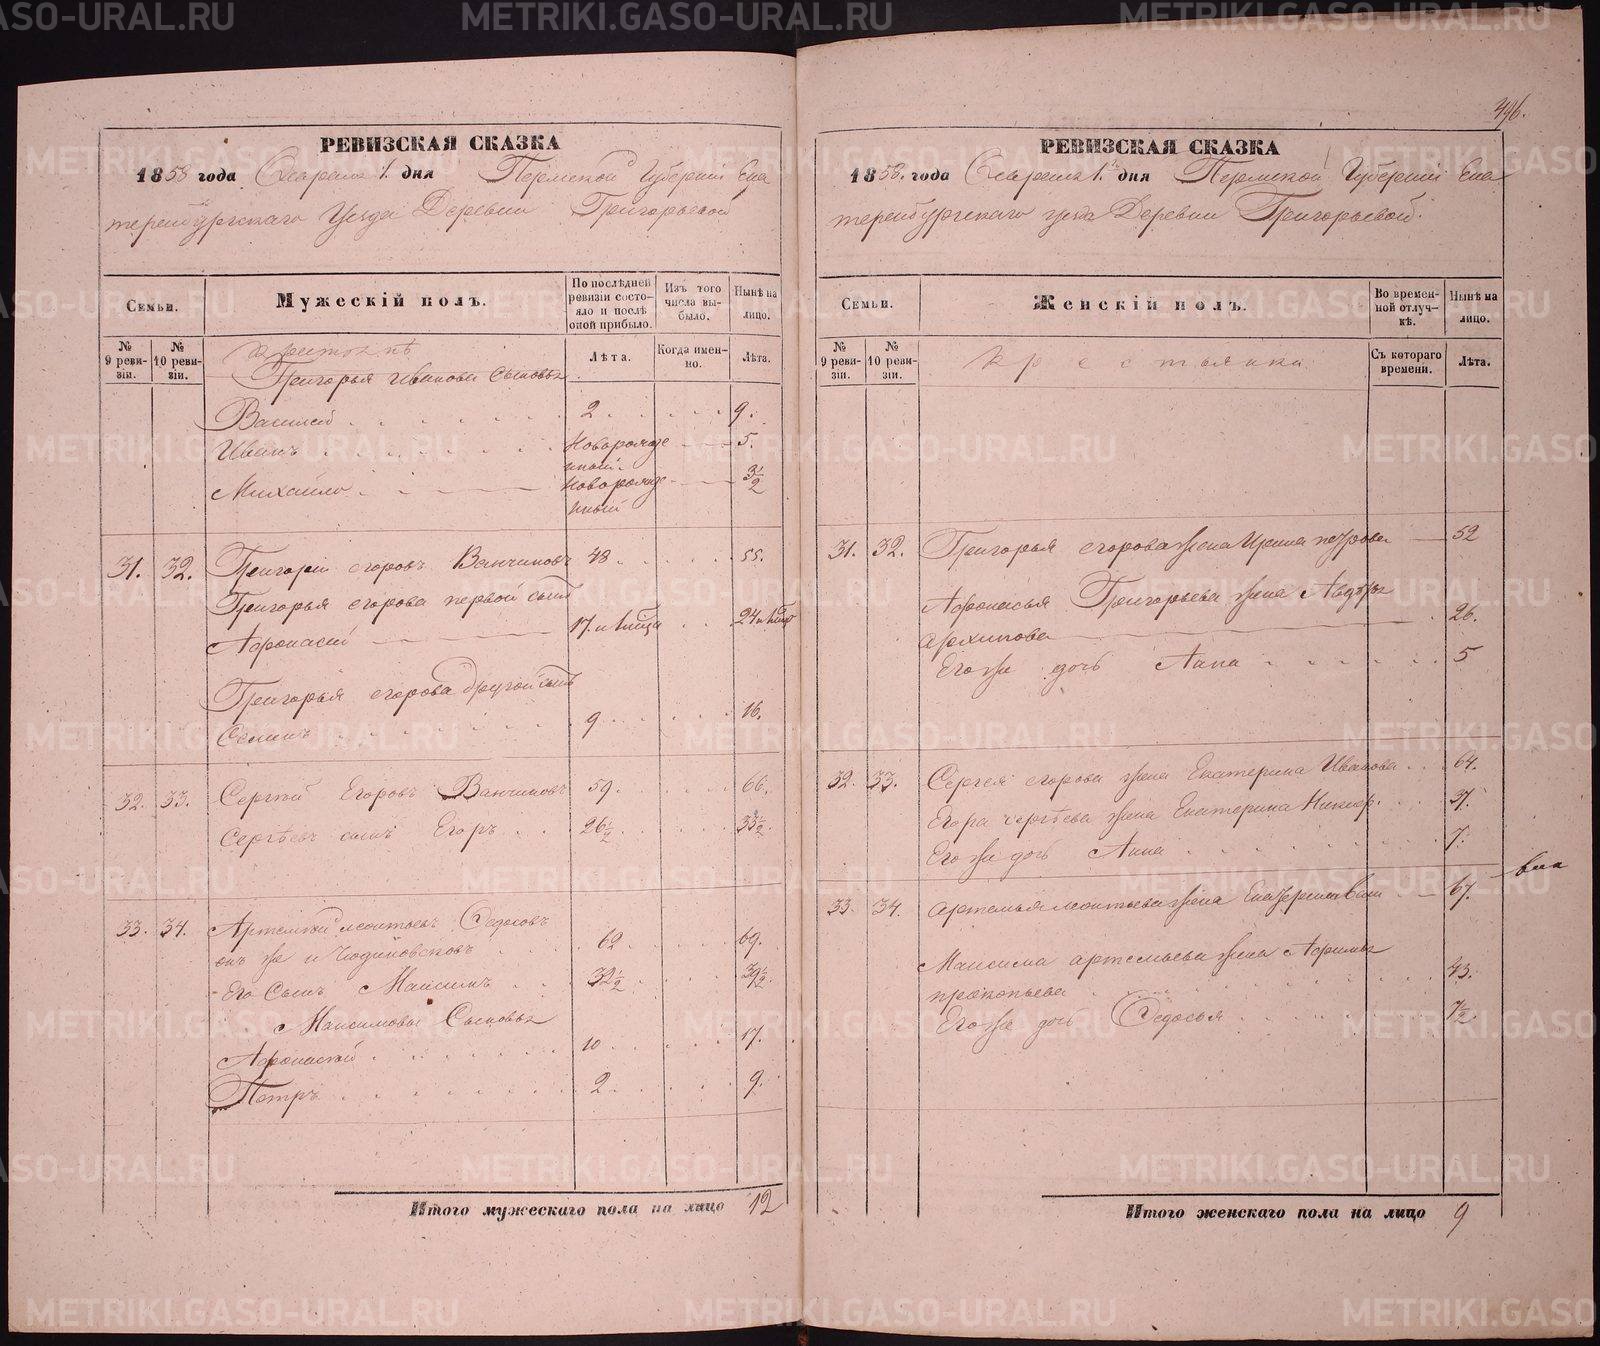 РЕВИЗСКАЯ СКАЗКА
1858 года Февраля 1. дня Пермской Губернии Ека
теринбургскаго Уезда Деревни Григорьевой
Семьи.
Мужескій полъ.
По послѣдней ревизіи состояло и послѣ оной прибыло.
Изъ того числа выбыло.
Нынѣ на лицо.
№ 9 ревизіи.
№ 10 ревизіи.
Лѣта.
Когда именно.
Лѣта.
Григорья Иванова Сыновья
Василей 2 9.
Иванъ Новорожденный. 5.
Михайло Новорожденный 3½
31. 32. Григорій Егоровъ Ванчиковъ 48 55.
Григорья Егорова первой сынъ
Афонасій 17. 24
Григорья Егорова другой сынъ
Семенъ 9 16.
32. 33. Сергей Егоровъ Ванчиковъ 59. 66.
Сергѣевъ сынъ Егоръ 26½ 33½
33. 34. Артемей Леонтьевъ Федосовъ
онъ же и 62 69.
Его Сынъ Максимъ 32½ 39½
Максимовы Сыновья
Афонасей 10 17.
Петръ 2 9.
Итого мужескаго пола на лицо 12
496.
РЕВИЗСКАЯ СКАЗКА
1858. года Февраля 1. дня Пермской Губерніи Ека
теринбургскаго уезда Деревни Григорьевой.
Семьи.
Женскій полъ.
Во временной отлучкѣ.
Нынѣ на лицо.
№ 9 ревизіи.
№ 10 ревизіи.
Крестьянки
Съ котораго времени.
Лѣта.
31. 32. Григорья Егорова жена Ирина Петрова 52
Афонасья Григорьева жена Авдотья
Архипова 26.
Его же дочь Анна 5
32. 33. Сергея Егорова жена Екатерина Иванова 64.
Егора Сергѣева жена Екатерина 37.
Его же дочь Анна 7.
33. 34. Артемья Леонтьева жена Екатерина 67.
Максима Артемьева жена
Прокопьева 43.
Его же дочь Федосья 7½
Итого женскаго пола на лицо 9
METRIKI.GASO-URAL.RU